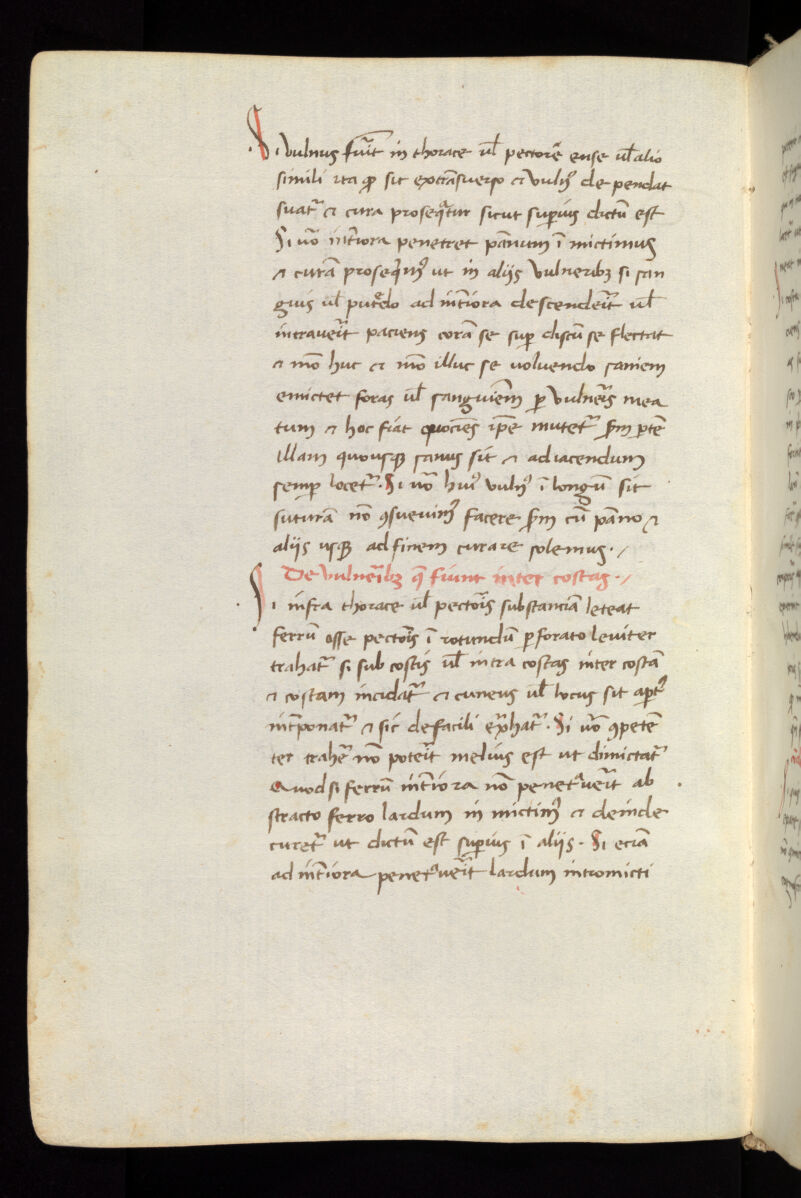 Si vulnus fu̅it in thorace ul̅ pectore̅ ense ul̅ alio
simili ita ꝙ sit extra̅sverso ⁊ vuln᷒ de pendat
suat᷑ ⁊ cura proseqͣtur sicut sup̅ius dictu̅ est
Si uo̅ int̅iora penetret pa̅num i̅ mictimus
⁊ cura̅ proseq̅m᷒ ut in aliis vulneribꝫ si san
guis ul̅ putredo ad int̅iora descende̅it ul̅
intraue̅it paciens cora̅ se sup̅ discu̅ se flectat
⁊ mo̅ huc ⁊ mo̅ illuc se uoluendo saniem
emictet foras ul̅ sanguine̅m ꝑ vulne̅is mea
tum ⁊ hoc fiat quocie̅s ip̅e mutet᷑ s̅m ꝑte̅
illam quousqꝫ sanus sit ⁊ ad iacendum
semp̅ locet᷑. Si uo̅ hui᷒ vuln᷒ i̅ longu̅ sit
sutura̅ no̅ ꝯsueuim᷒ facere s̅m cu̅ pa̅no ⁊
aliis usqꝫ ad finem curare solemus. /
De vulne̅ibꝫ q̅ fiunt inter costas. /
Si infra thorace ul̅ pecto̅is substancia̅ leteat
ferru̅ osse pecto̅is i̅ rotundu̅ ꝑforato leuiter
trahat᷑ si sub costis ul̅ intra costas inter costa̅
⁊ costam incidat᷑ ⁊ cuneus ul̅ locus sit apt᷒
int̅ponat᷑ ⁊ sic de facili ext̅hat᷑. Si uo̅ ꝯpete̅
ter trahe̅ no̅ pote̅it melius est ut dimictat᷑
Quod si ferru̅ int̅iora no̅ penet᷑ue̅it ab
stracto ferro lardum in mictim᷒ ⁊ deinde
curet᷑ ut dictu̅ est sup̅ius i̅ aliis. Si ecia̅
ad int̅iora penet᷑ue̅it lardum intromicti